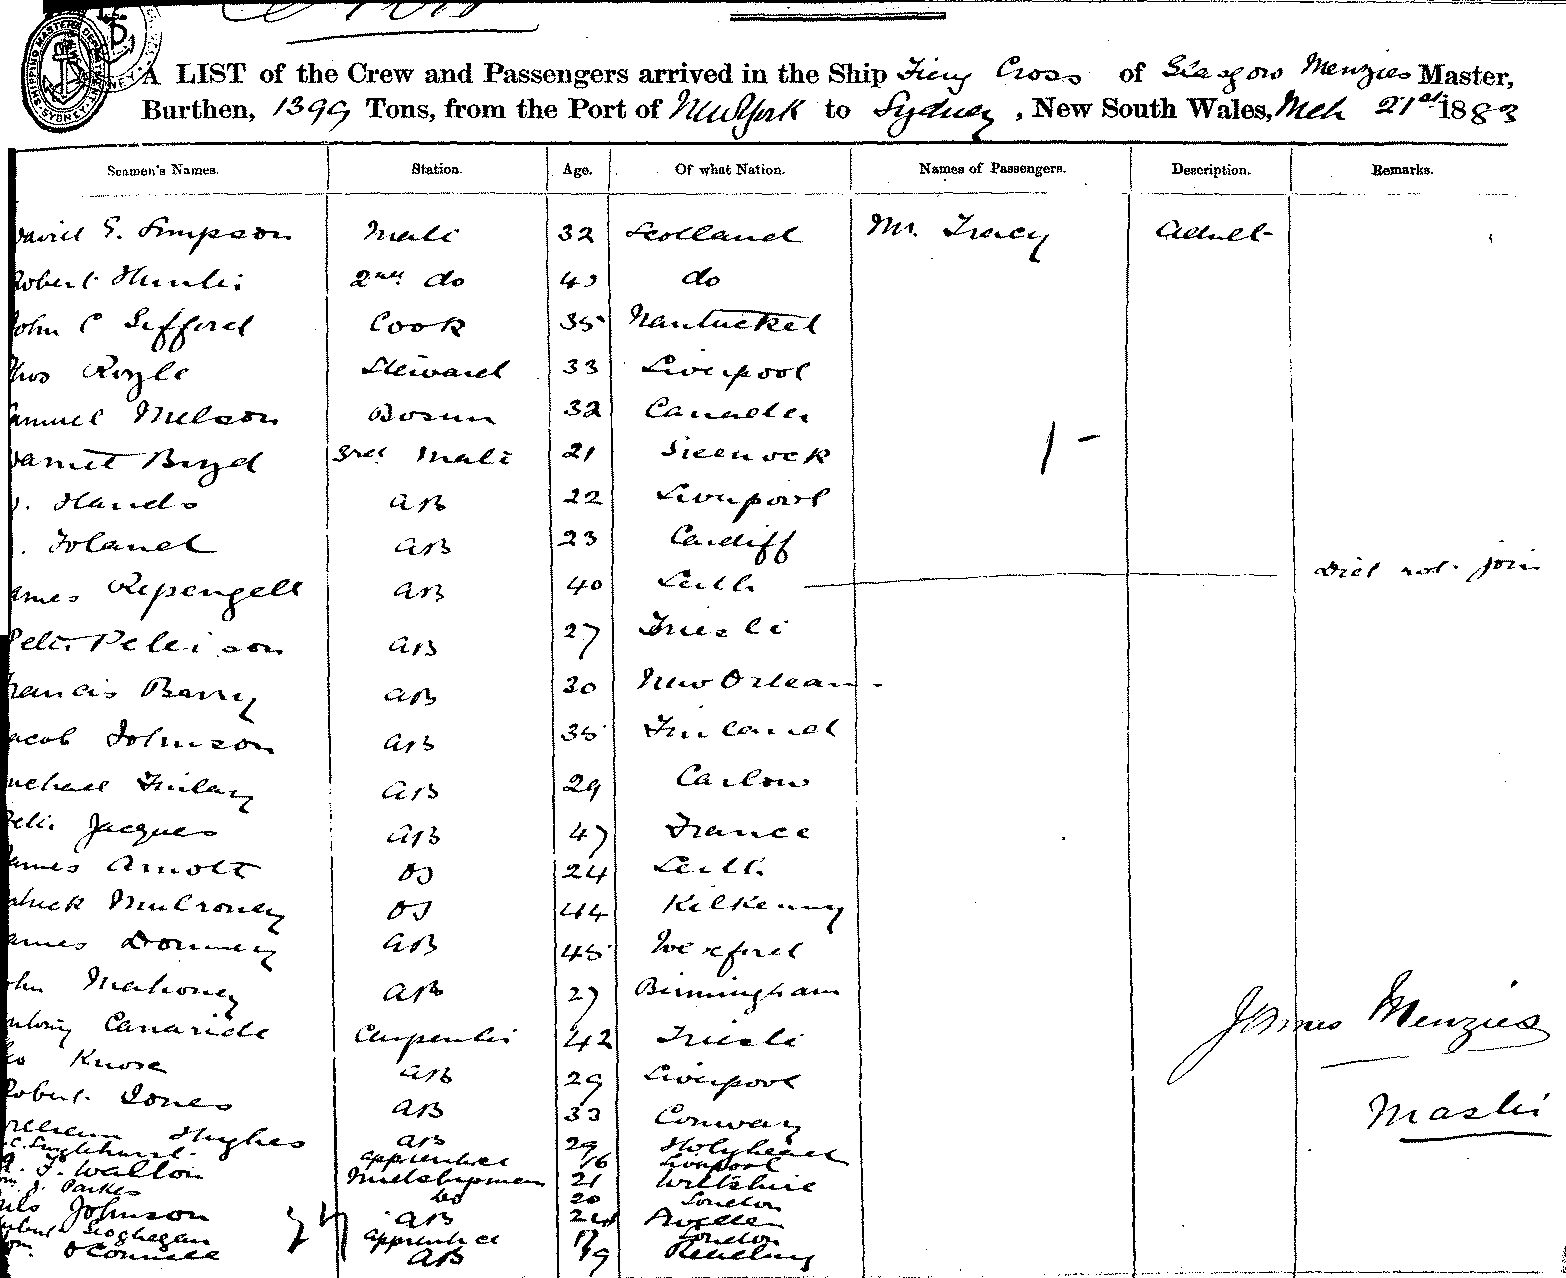 SHIPPING MASTERS DEPARTMENT SYDNEY
A LIST of the Crew and Passengers arrived in the Ship Fiery Cross of Glasgow Menzies Master,
Burthen, 1399 Tons, from the Port of New York to Sydney, New South Wales, Mch 21st 1883
Seamen's Names. Station. Age. Of what Nation. Names of Passengers. Description. Remarks.
David S. Simpson Mate 32 Scotland Mr. Tracy Adult
Robert Hunter 2nd do 43 do
John C Sifford Cook 35 Nantucket
Thos Royle Steward 33 Liverpool
Samuel Nelson Bosun 32 Canada
Boyd 3rd Mate 21 Greenock 1-
Hands AB 22 Liverpool
Toland AB 23 Cardiff
James Repengell AB 40 Leith Did not join
Peter Peterson AB 27 Trieste
Francis Barry AB 30 New Orleans
Jacob Johnson AB 35 Finland
Michael Finlay AB 29 Carlow
Peter Jacques AB 47 France
James Arnott OS 24 Leith
Patrick Mulroney OS 44 Kilkenny
James AB 45 Wexford
John Mahoney AB 27 Birmingham
Antony Canaride Carpenter 42 Trieste James Menzies
Knose AB 29 Liverpool
Robert Jones AB 33 Conway Master
William Hughes AB 29 Holyhead
apprentice 16 Liverpool
J. Walton Midshipman 21 Wiltshire
J. Parkes do 20 London
Nils Johnson AB 24 Sweden
Geoghegan apprentice 17 London
OConnell AB 19